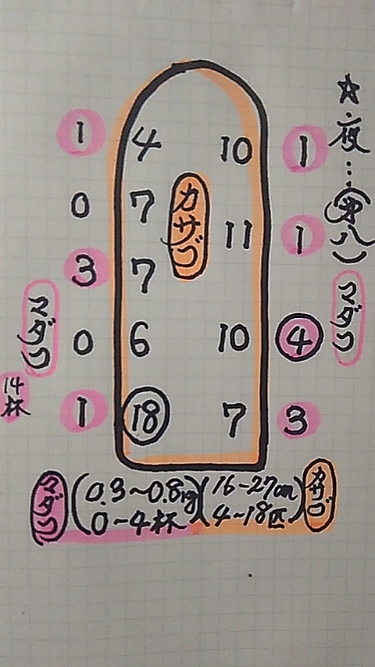 ☆夜…(第八)
1 4 10 1
カサゴ
0 7 11 1
3 7
マダコ 0 6 10 ④ マダコ
14杯 1 ⑱ 7 3
マダコ (0.3〜0.8kg)(16-27cm) カサゴ
0〜4杯 4〜18匹